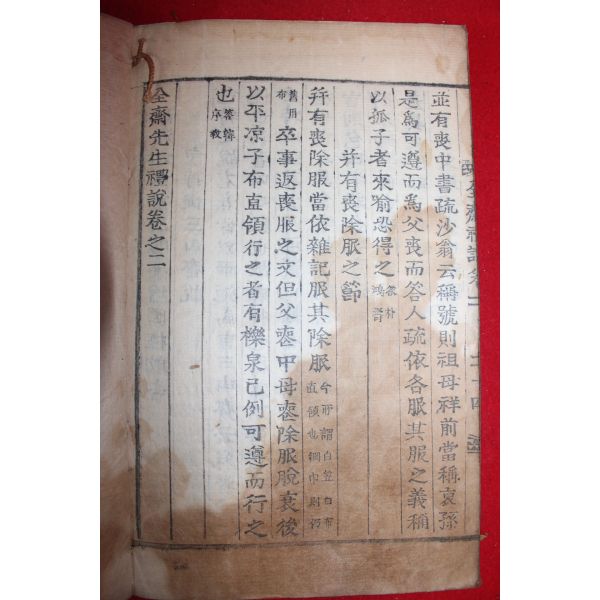 並有喪中書疏沙翁云稱號則祖母祥前當稱哀孫
是爲可遵而爲父喪而答人疏依各服其服之義稱
以孤子者來喻恐得之答朴鴻壽
并有喪除服之節
并有喪除服當依雜記服其除服今所謂白笠白布直領也網巾則仍
舊用布卒事返喪服之文但父喪中母喪除服脫衰後
以平凉子布直領行之者有櫟泉已例可遵而行之
也
全齋先生禮說卷之二